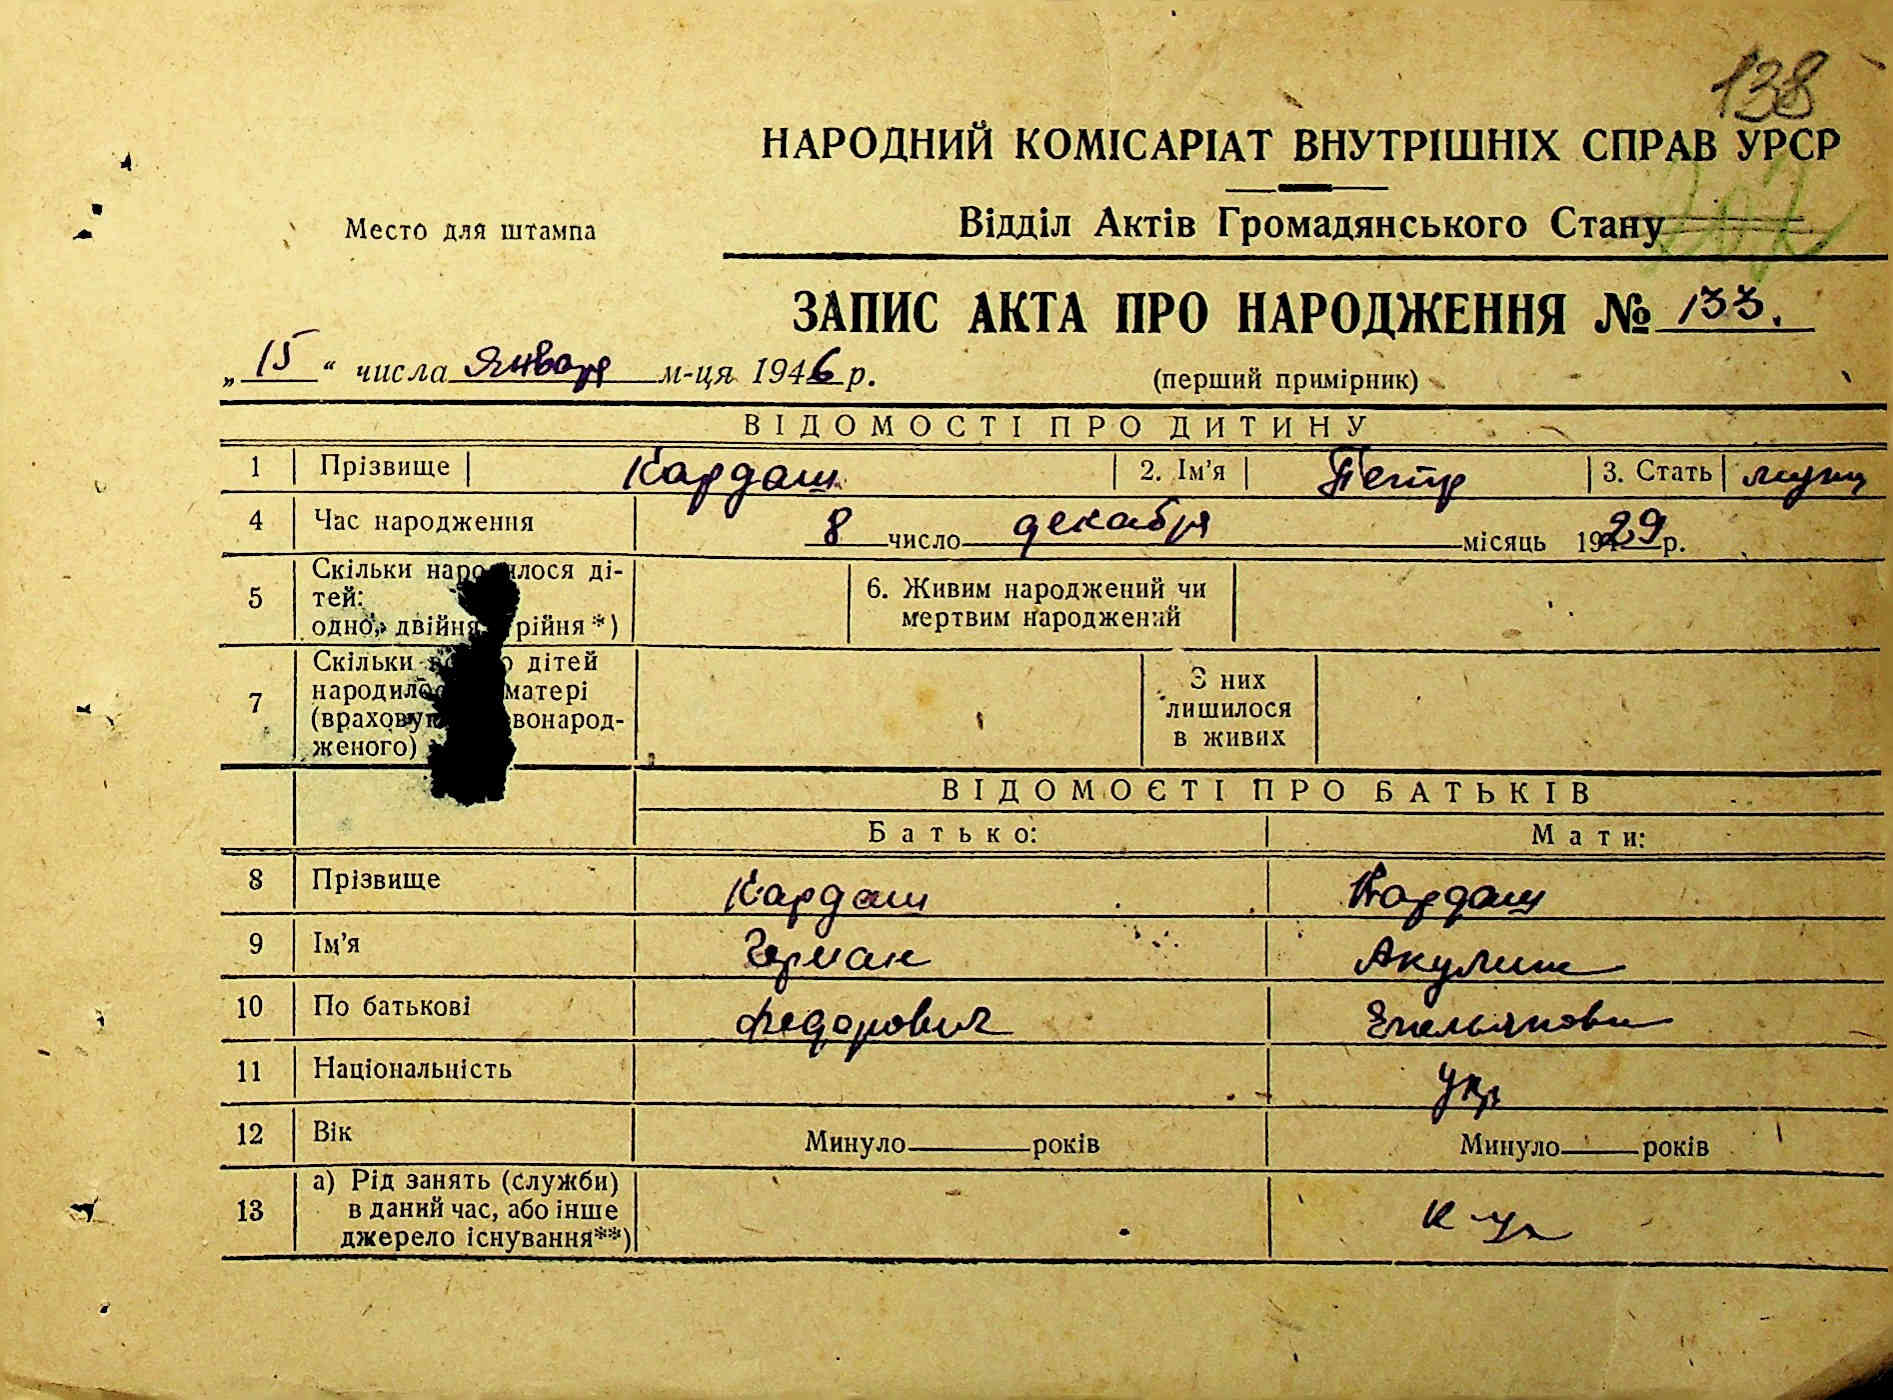 138
НАРОДНИЙ КОМІСАРІАТ ВНУТРІШНІХ СПРАВ УРСР
Место для штампа
Відділ Актів Громадянського Стану
207
ЗАПИС АКТА ПРО НАРОДЖЕННЯ № 133.
„15“ числа Января м-ця 1946 р.
(перший примірник)
ВІДОМОСТІ ПРО ДИТИНУ
1 Прізвище Кардаш 2. Ім’я Петр 3. Стать муж
4 Час народження 8 число декабря місяць 1929 р.
5 Скільки народилося ді-
тей:
одно, двійня, трійня *)
6. Живим народжений чи
мертвим народжений
7 Скільки дітей
народилося матері
(враховуючи новонарод-
женого)
З них
лишилося
в живих
ВІДОМОСТІ ПРО БАТЬКІВ
Батько: Мати:
8 Прізвище Кардаш Кардаш
9 Ім’я Герман Акулина
10 По батькові Федорович Емельяновна
11 Національність укр
12 Вік Минуло років Минуло років
13 а) Рід занять (служби)
в даний час, або інше
джерело існування**)